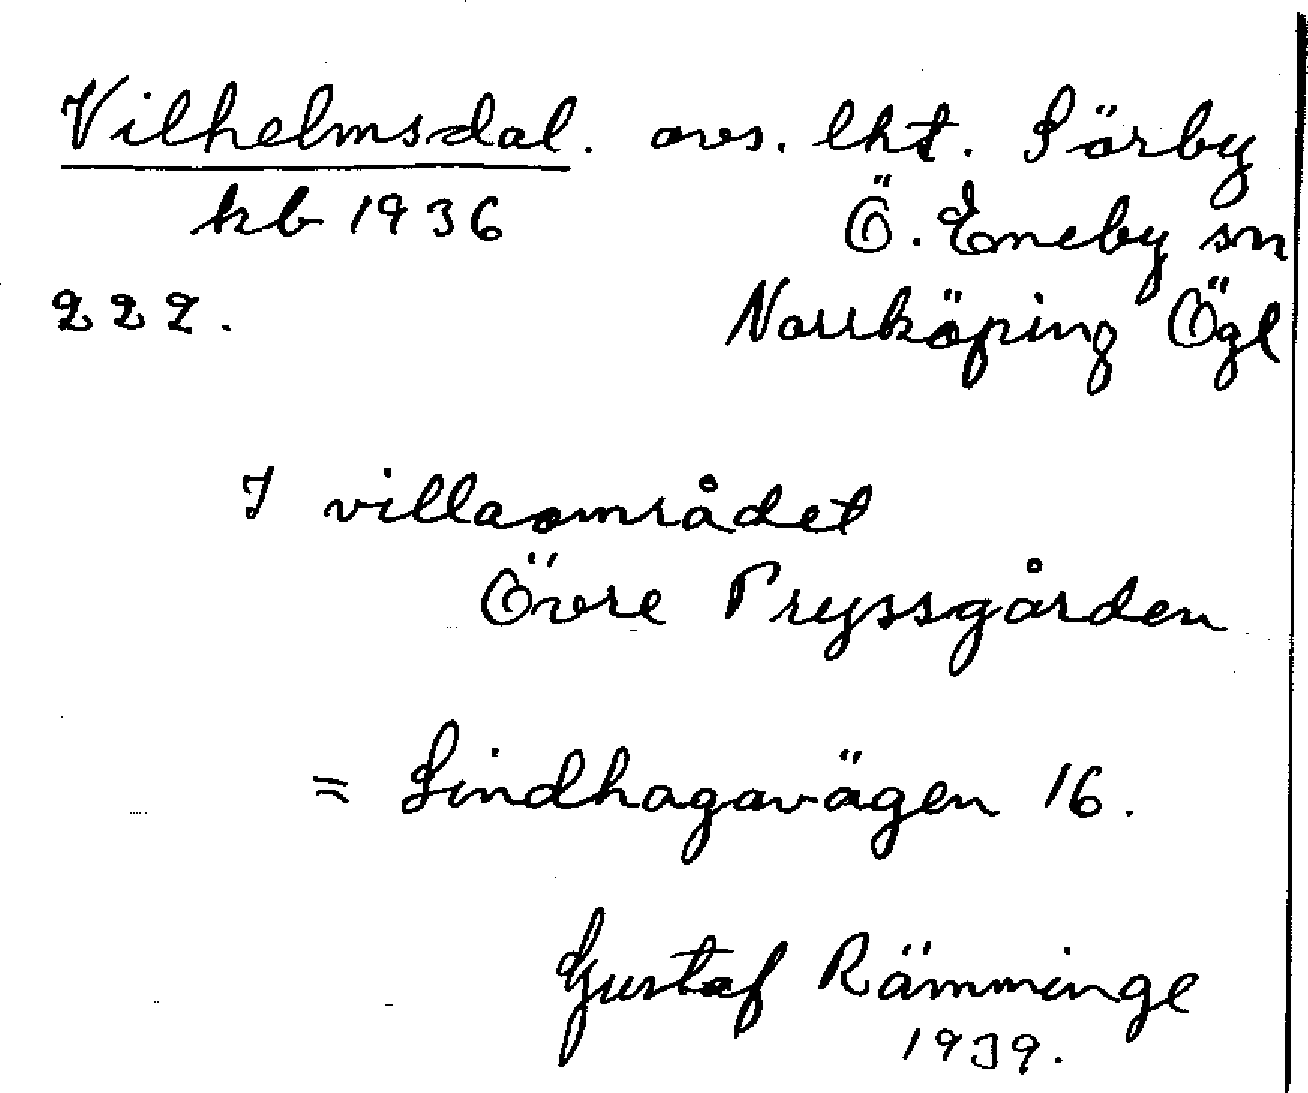 Vilhelmsdal. avs. lht. Sörby
kb 1936 Ö. Eneby sn
222. Norrköping Ögl
I villaområdet
Övre Pryssgården
= Lindhagavägen 16.
Gustaf Rämminge
1939.